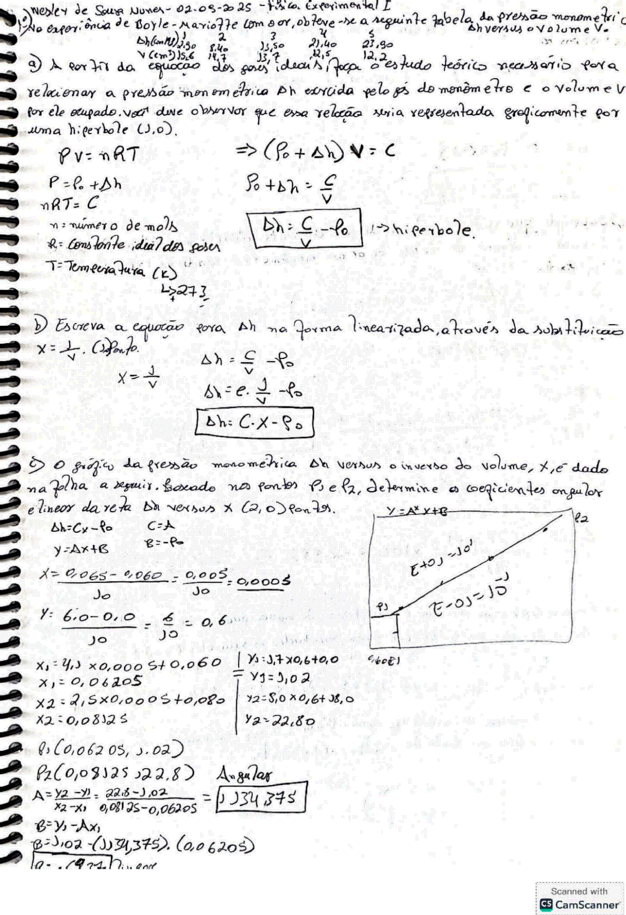 Wesley de Sousa Nunes - 02-05-2025 - Física Experimental I
No experiência de Boyle-Mariotte com o ar, obteve-se a seguinte tabela da pressão monométrica
Δh versus o volume V.
1 2 3 4 5
Δh(cmHg) 2,50 8,40 13,50 21,40 23,90
V(cm³) 15,6 14,7 13,7 12,5 12,2
a) A partir da equação dos gases ideais, faça o estudo teórico necessário para
relacionar a pressão monométrica Δh exercida pelo gás do monômetro e o volume V
por ele ocupado. você deve observar que essa relação seria representada graficamente por
uma hiperbole (1,0).
PV = nRT ⇒ (P0 + Δh) V = C
P = P0 + Δh P0 + Δh = C/V
nRT = C
n = número de mols Δh = C/V - P0 → hiperbole.
R = constante ideal dos gases
T = Temperatura (K)
↳ 273
b) Escreva a equação para Δh na forma linearizada, através da substituição
X = 1/V. (1)ponto.
X = 1/V Δh = C/V - P0
Δh = C. 1/V - P0
Δh = C.X - P0
c) O gráfico da pressão monométrica Δh versus o inverso do volume, X, é dado
na folha a seguir. Baseado nos pontos P1 e P2, determine os coeficientes angular
e linear da reta Δh versus X (2,0) pontos.
Δh = Cx - P0 C = A
Y = Ax + B B = -P0
Y = A* X + B
P2
E+01 = 10¹
E-01 = 10⁻¹
P1
X = 0,065 - 0,060 / 10 = 0,005 / 10 = 0,0005
Y: 6.0 - 0,0 / 10 = 6 / 10 = 0,6
X1 = 4,1 x 0,0005 + 0,060 Y1 = 1,7 x 0,6 + 0,0
X1 = 0,06205 Y1 = 1,02
X2 = 2,5 x 0,0005 + 0,080 Y2 = 8,0 x 0,6 + 18,0
X2 = 0,08125 Y2 = 22,80
P1 (0,06205, 1.02)
P2 (0,08125, 22,8) Angular
A = Y2 - Y1 / X2 - X1 = 22,8 - 1,02 / 0,08125 - 0,06205 = 1134,375
B = Y1 - Ax1
B = 1,02 - (1134,375). (0,06205)
Scanned with
CS CamScanner